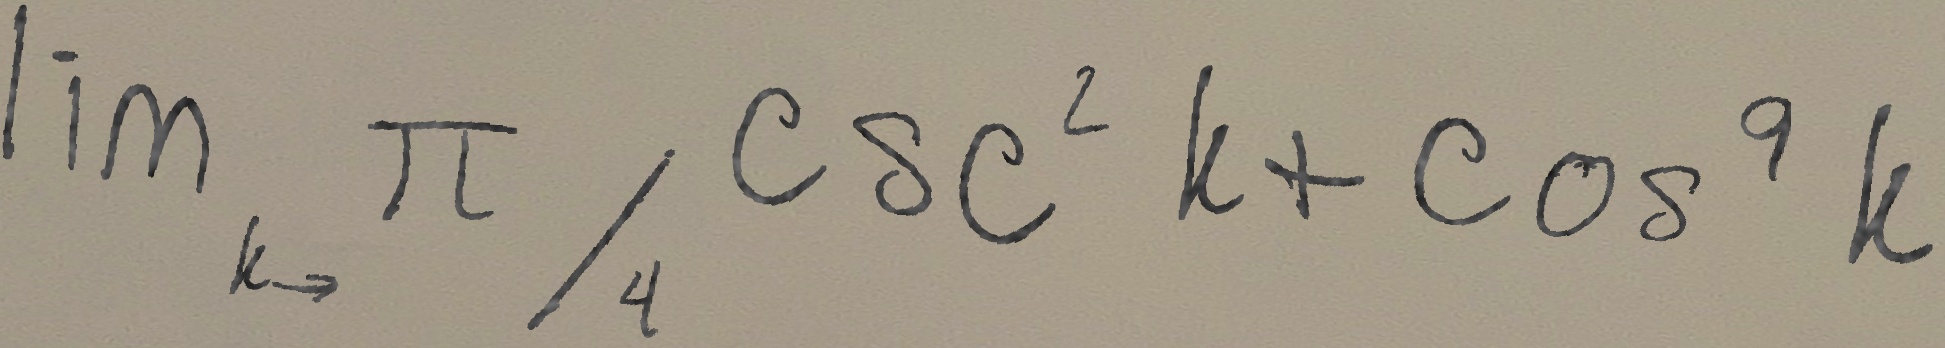 \lim_{k \to \pi/4} \csc^2 k + \cos^9 k